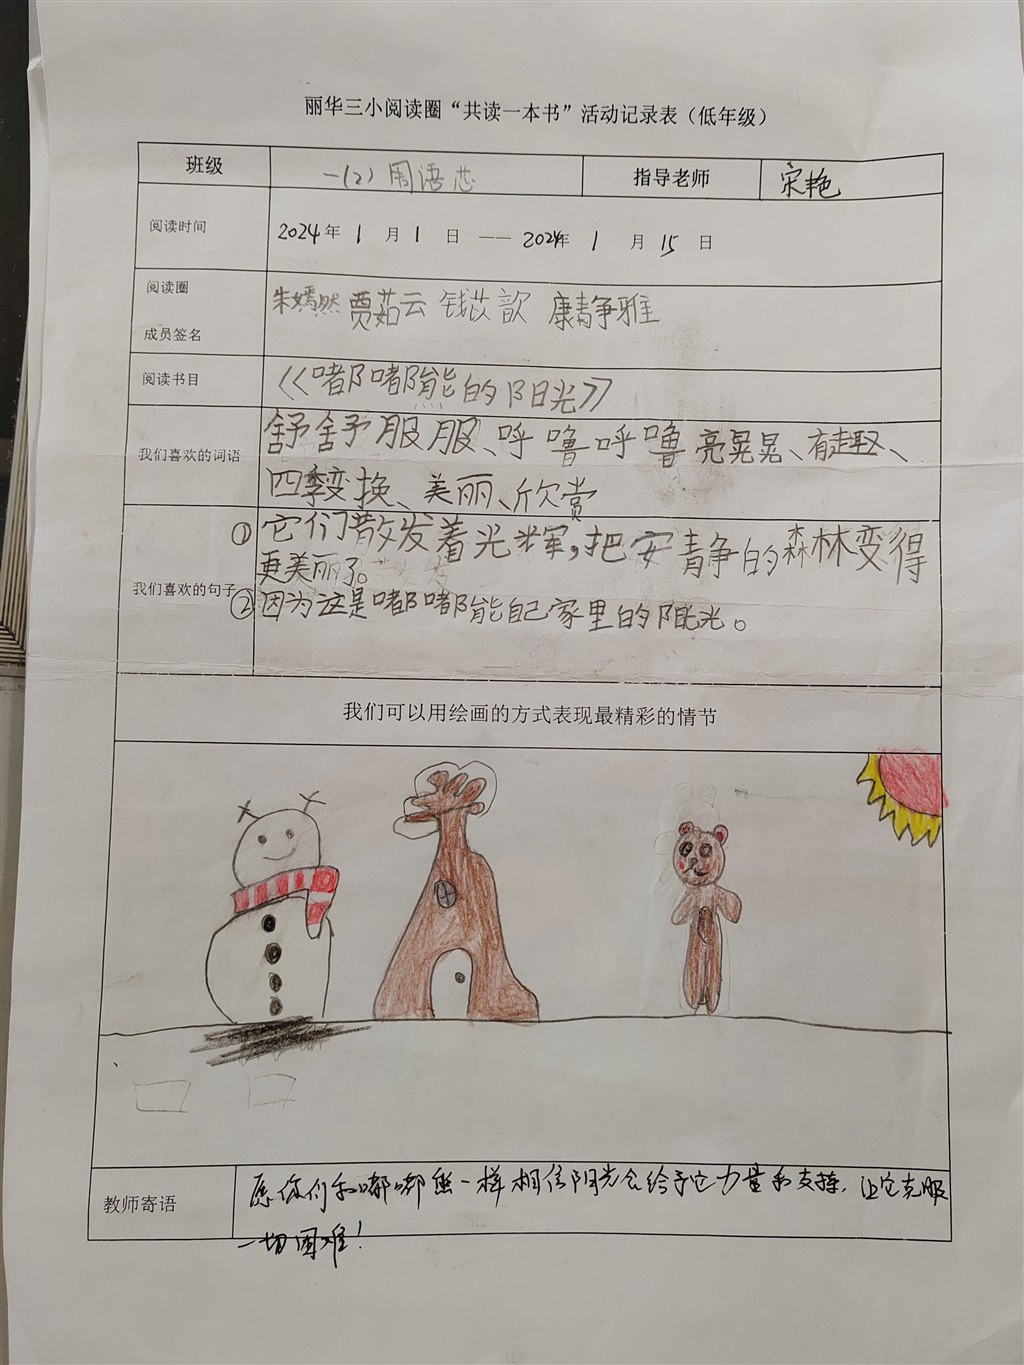 丽华三小阅读圈“共读一本书”活动记录表（低年级）
班级 一(2) 周语芯 指导老师 宋艳
阅读时间 2024年 1 月 1 日 —— 2024年 1 月 15 日
阅读圈
朱嫣然 贾茹云 钱苡歆 康静雅
成员签名
阅读书目 《嘟嘟熊的阳光》
舒舒服服、呼噜呼噜 亮晃晃、有趣、
我们喜欢的词语
四季变换、美丽、欣赏
①它们散发着光辉，把安静的森林变得
更美丽了。
我们喜欢的句子
②因为这是嘟嘟熊自己家里的阳光。
我们可以用绘画的方式表现最精彩的情节
教师寄语 愿你们和嘟嘟熊一样相信阳光会给予它力量和支撑，让它克服
一切困难！